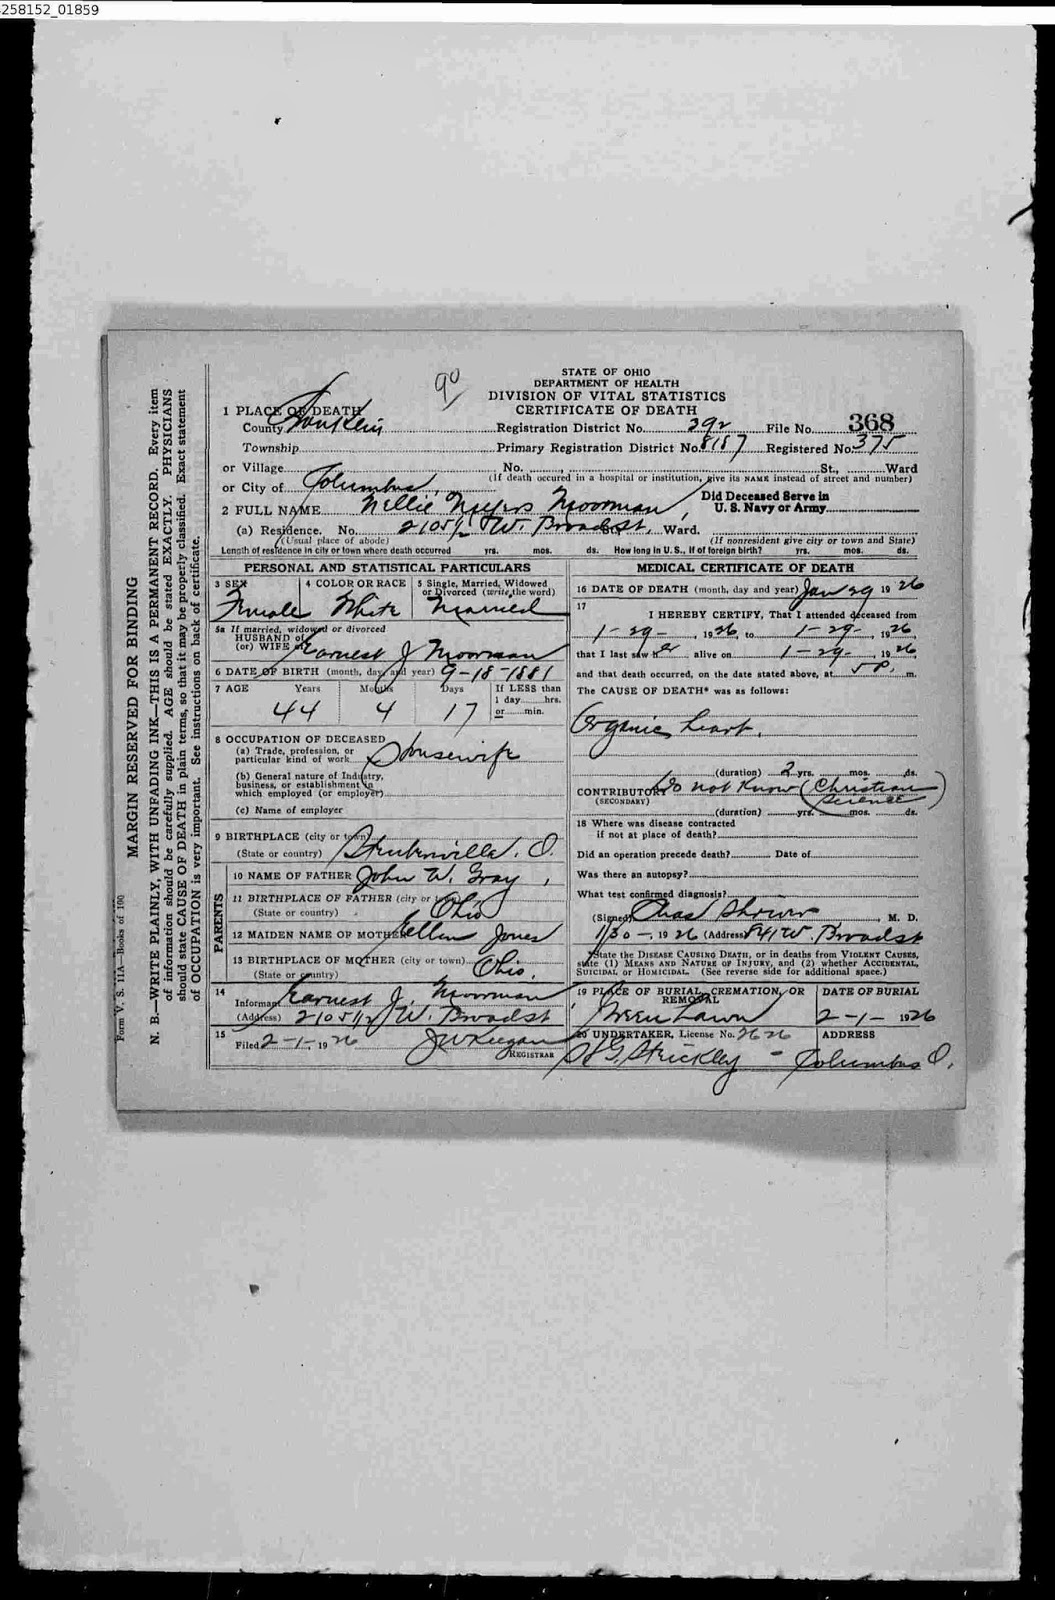 258152_01859
90
STATE OF OHIO
DEPARTMENT OF HEALTH
DIVISION OF VITAL STATISTICS
CERTIFICATE OF DEATH
1 PLACE OF DEATH
County Franklin Registration District No. 392 File No. 368
Township Primary Registration District No. 8187 Registered No. 375
or Village No. , St., Ward
(If death occured in a hospital or institution, give its NAME instead of street and number)
or City of Columbus
2 FULL NAME Nellie Moorman Did Deceased Serve in U. S. Navy or Army
(a) Residence. No. 2105 1/2 W. Broad St., Ward.
(Usual place of abode) (If nonresident give city or town and State)
Length of residence in city or town where death occurred yrs. mos. ds. How long in U. S., if of foreign birth? yrs. mos. ds.
PERSONAL AND STATISTICAL PARTICULARS
3 SEX 4 COLOR OR RACE 5 Single, Married, Widowed or Divorced (write the word)
Female White Married
5a If married, widowed or divorced
HUSBAND of
(or) WIFE of Earnest J Moorman
6 DATE OF BIRTH (month, day, and year) 9-18-1881
7 AGE Years Months Days If LESS than 1 day hrs. or min.
44 4 17
8 OCCUPATION OF DECEASED
(a) Trade, profession, or particular kind of work Housewife
(b) General nature of Industry, business, or establishment in which employed (or employer)
(c) Name of employer
9 BIRTHPLACE (city or town)
(State or country) Steubenville, O.
PARENTS
10 NAME OF FATHER John W. Gray
11 BIRTHPLACE OF FATHER (city or town)
(State or country) Ohio
12 MAIDEN NAME OF MOTHER Ellen Jones
13 BIRTHPLACE OF MOTHER (city or town)
(State or country) Ohio.
14
Informant Earnest J. Moorman
(Address) 2105 1/2 W. Broad St
15
Filed 2-1-1926 J W Keegan
REGISTRAR
MEDICAL CERTIFICATE OF DEATH
16 DATE OF DEATH (month, day and year) Jan 29 1926
17 I HEREBY CERTIFY, That I attended deceased from
1-29-, 1926, to 1-29-, 1926,
that I last saw her alive on 1-29-, 1926,
and that death occurred, on the date stated above, at 5 P. m.
The CAUSE OF DEATH* was as follows:
Organic heart.
(duration) 2 yrs. mos. ds.
CONTRIBUTORY Do not Know (Christian Science)
(SECONDARY)
(duration) yrs. mos. ds.
18 Where was disease contracted
if not at place of death?
Did an operation precede death? Date of
Was there an autopsy?
What test confirmed diagnosis?
(Signed) Chas , M. D.
1/30-, 1926 (Address) 841 W. Broad St
*State the DISEASE CAUSING DEATH, or in deaths from VIOLENT CAUSES, state (1) MEANS AND NATURE OF INJURY, and (2) whether ACCIDENTAL, SUICIDAL or HOMICIDAL. (See reverse side for additional space.)
19 PLACE OF BURIAL, CREMATION, OR REMOVAL DATE OF BURIAL
Green Lawn 2-1-1926
20 UNDERTAKER, License No. 2626 ADDRESS
Strickley - Columbus O.
MARGIN RESERVED FOR BINDING
N. B.—WRITE PLAINLY, WITH UNFADING INK—THIS IS A PERMANENT RECORD. Every item
of information should be carefully supplied. AGE should be stated EXACTLY. PHYSICIANS
should state CAUSE OF DEATH in plain terms, so that it may be properly classified. Exact statement
of OCCUPATION is very important. See instructions on back of certificate.
Form V. S. 11A—Books of 100